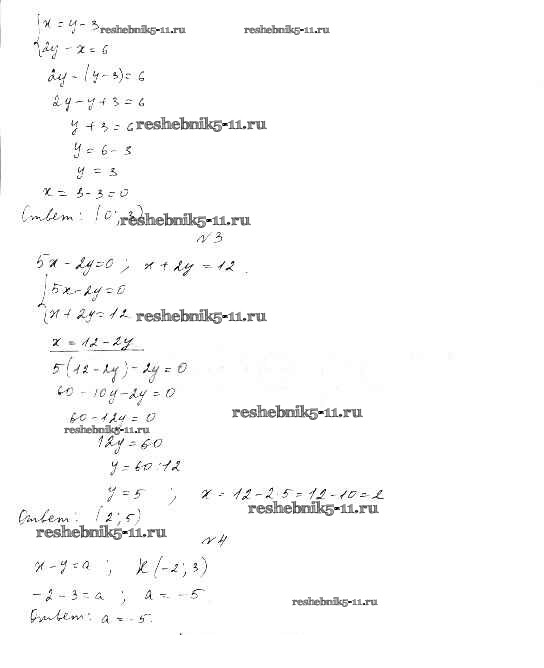 x = y - 3 reshebnik5-11.ru reshebnik5-11.ru
2y - x = 6
2y - (y - 3) = 6
2y - y + 3 = 6
y + 3 = 6 reshebnik5-11.ru
y = 6 - 3
y = 3
x = 3 - 3 = 0
Ответ: (0; 3) reshebnik5-11.ru
№3
5x - 2y = 0 ; x + 2y = 12.
5x - 2y = 0
x + 2y = 12 reshebnik5-11.ru
x = 12 - 2y
5(12 - 2y) - 2y = 0
60 - 10y - 2y = 0
60 - 12y = 0 reshebnik5-11.ru
reshebnik5-11.ru
12y = 60
y = 60:12
y = 5 ; x = 12 - 2·5 = 12 - 10 = 2
reshebnik5-11.ru
Ответ: (2; 5)
reshebnik5-11.ru
№4
x - y = a ; K(-2; 3)
-2 - 3 = a ; a = -5.
reshebnik5-11.ru
Ответ: a = -5.